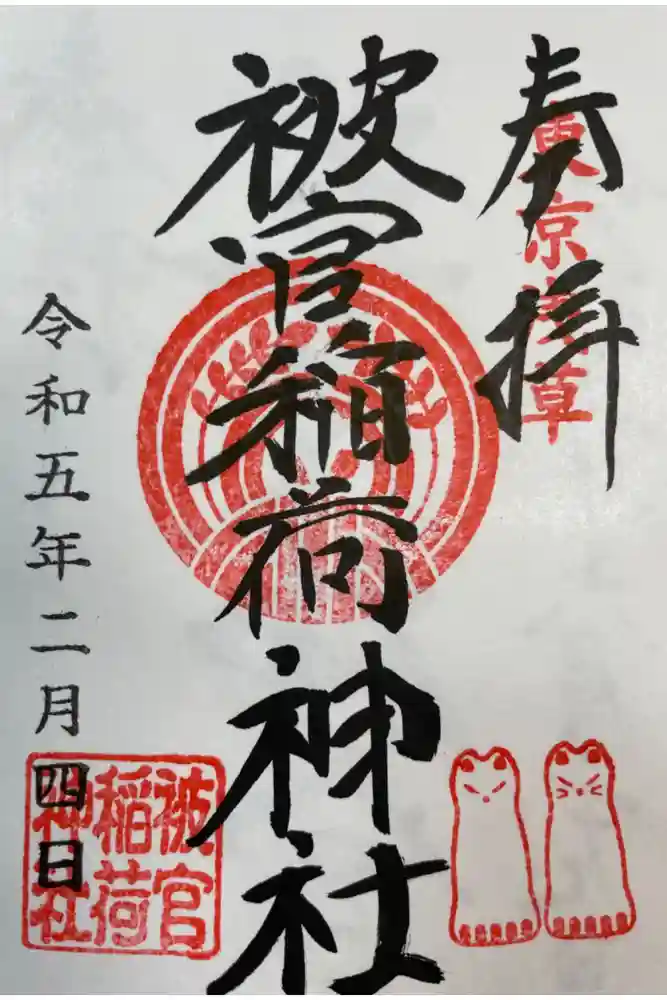 奉拝
東京浅草
被官稲荷神社
令和五年二月四日
被官
稲荷
神社